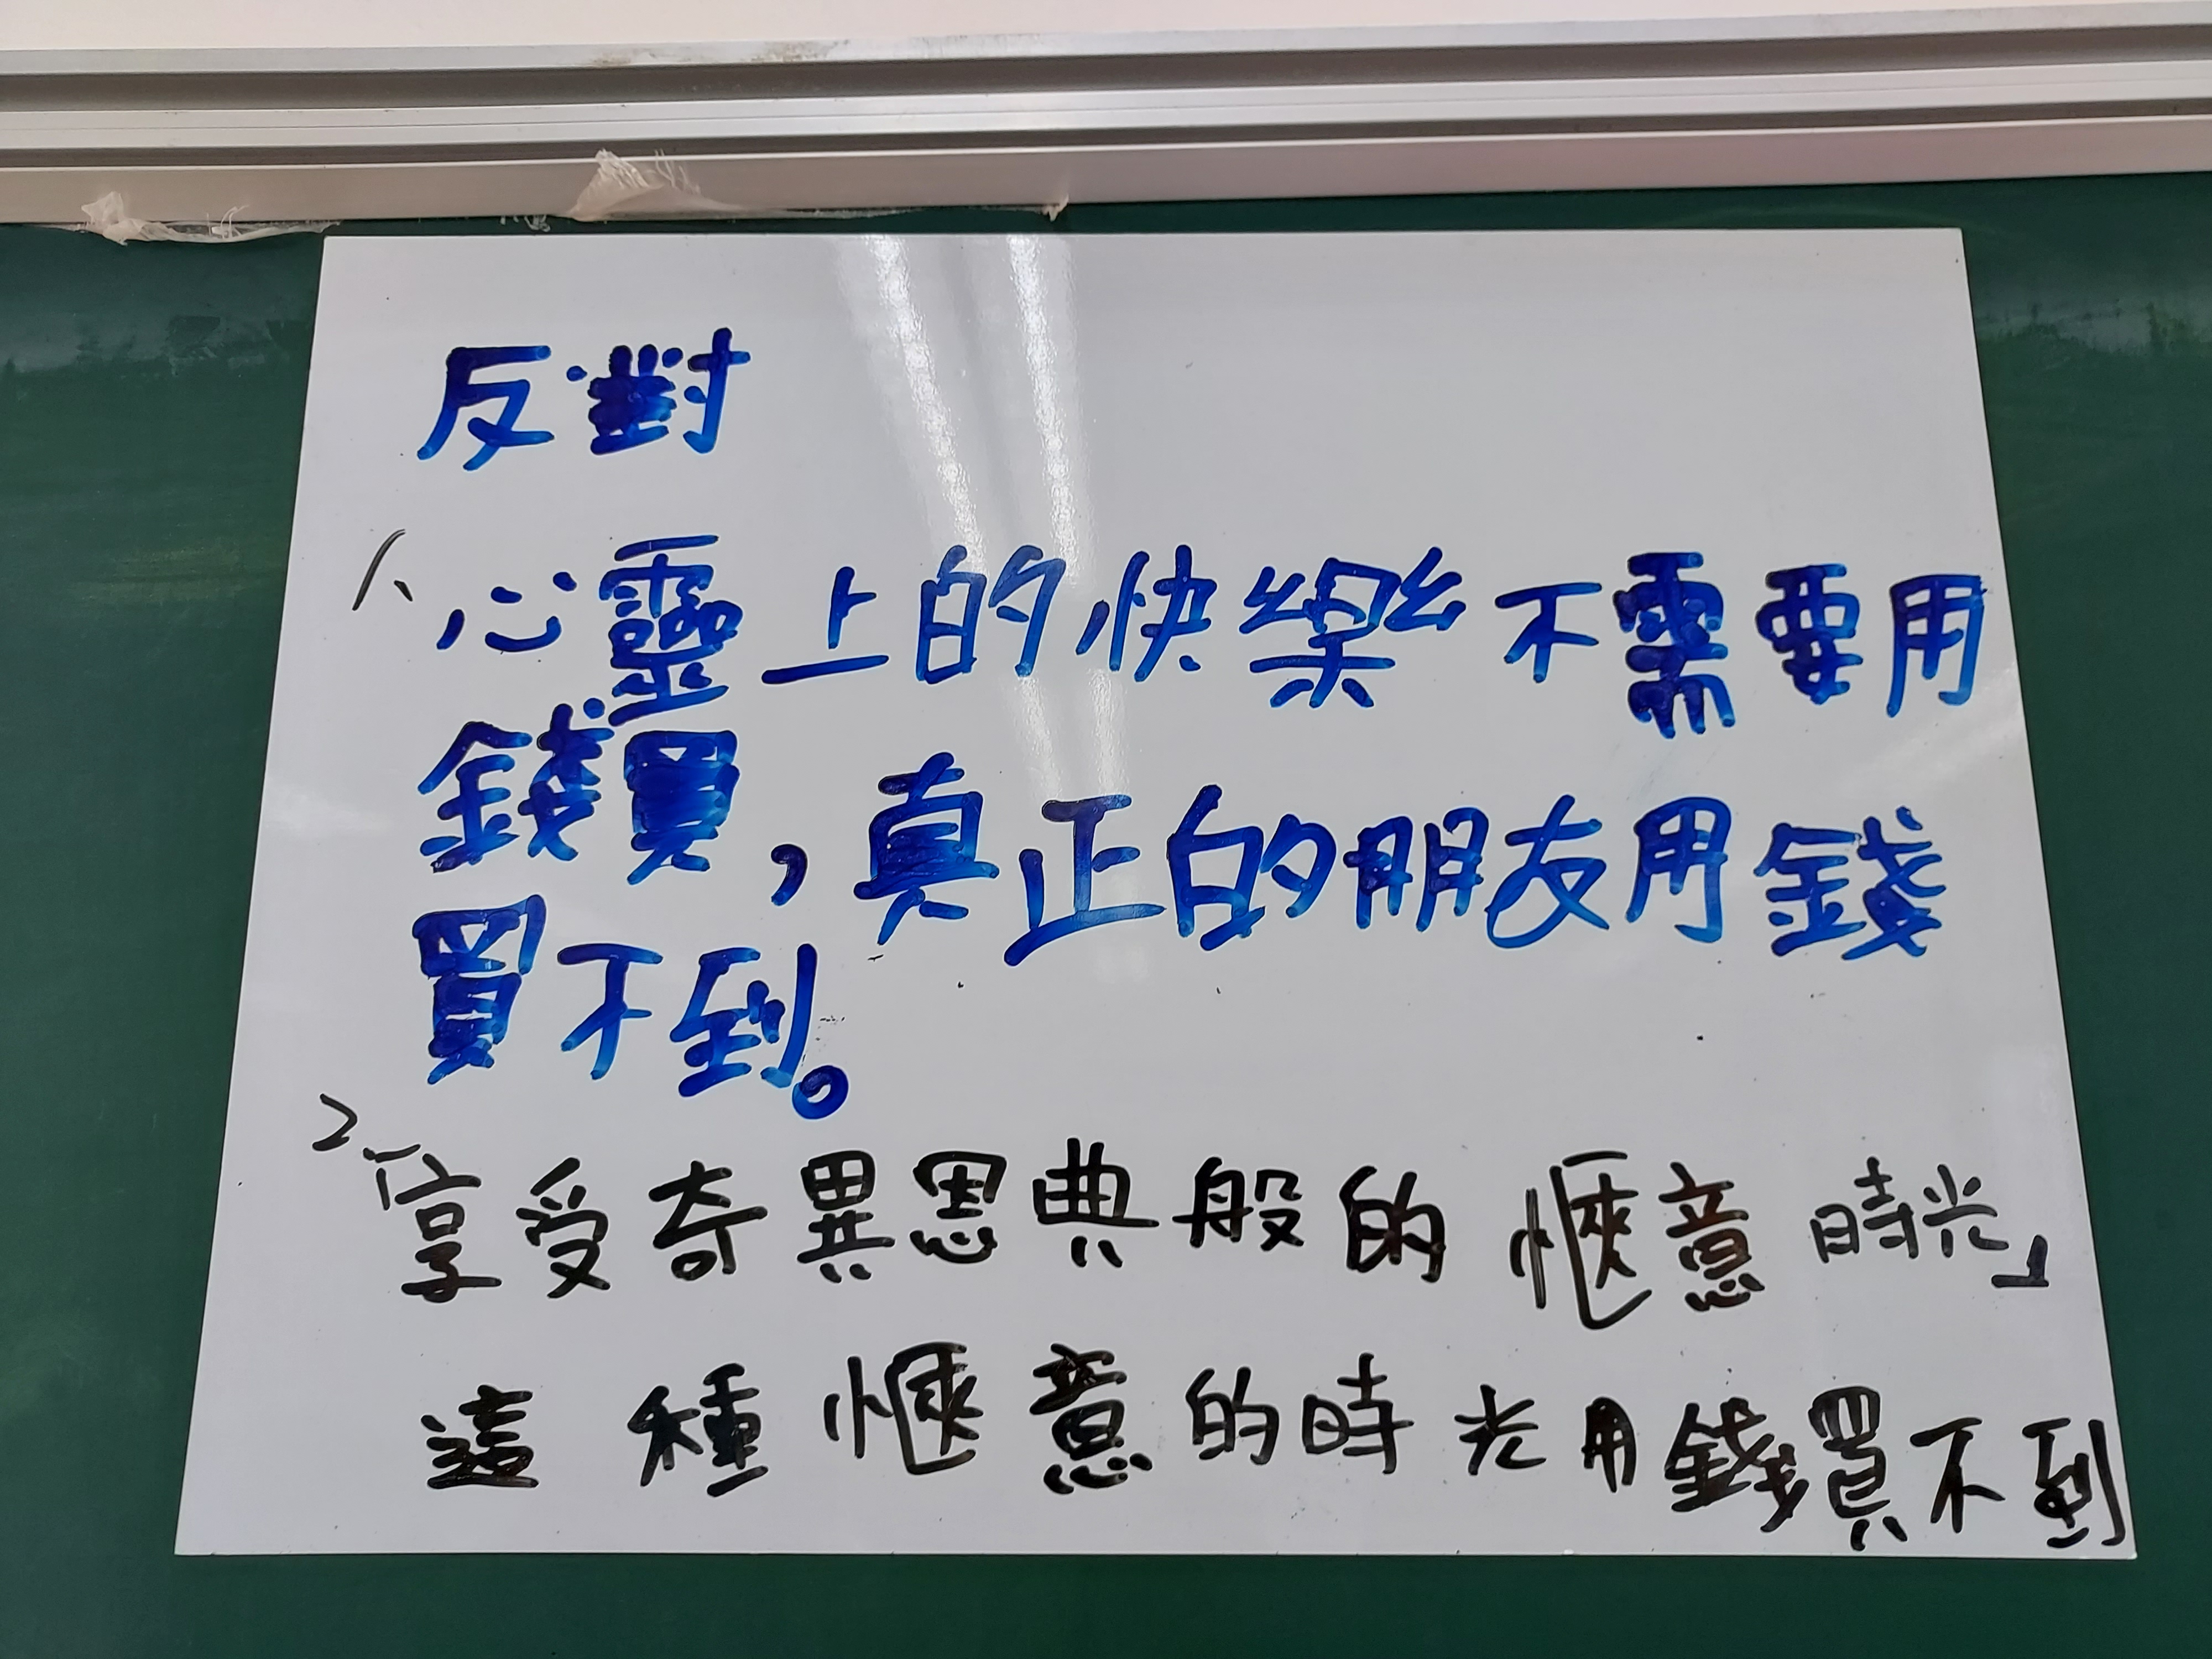 反對
1、心靈上的快樂不需要用
錢買,真正的朋友用錢
買不到。
2、「享受奇異恩典般的愜意時光」
這種愜意的時光用錢買不到